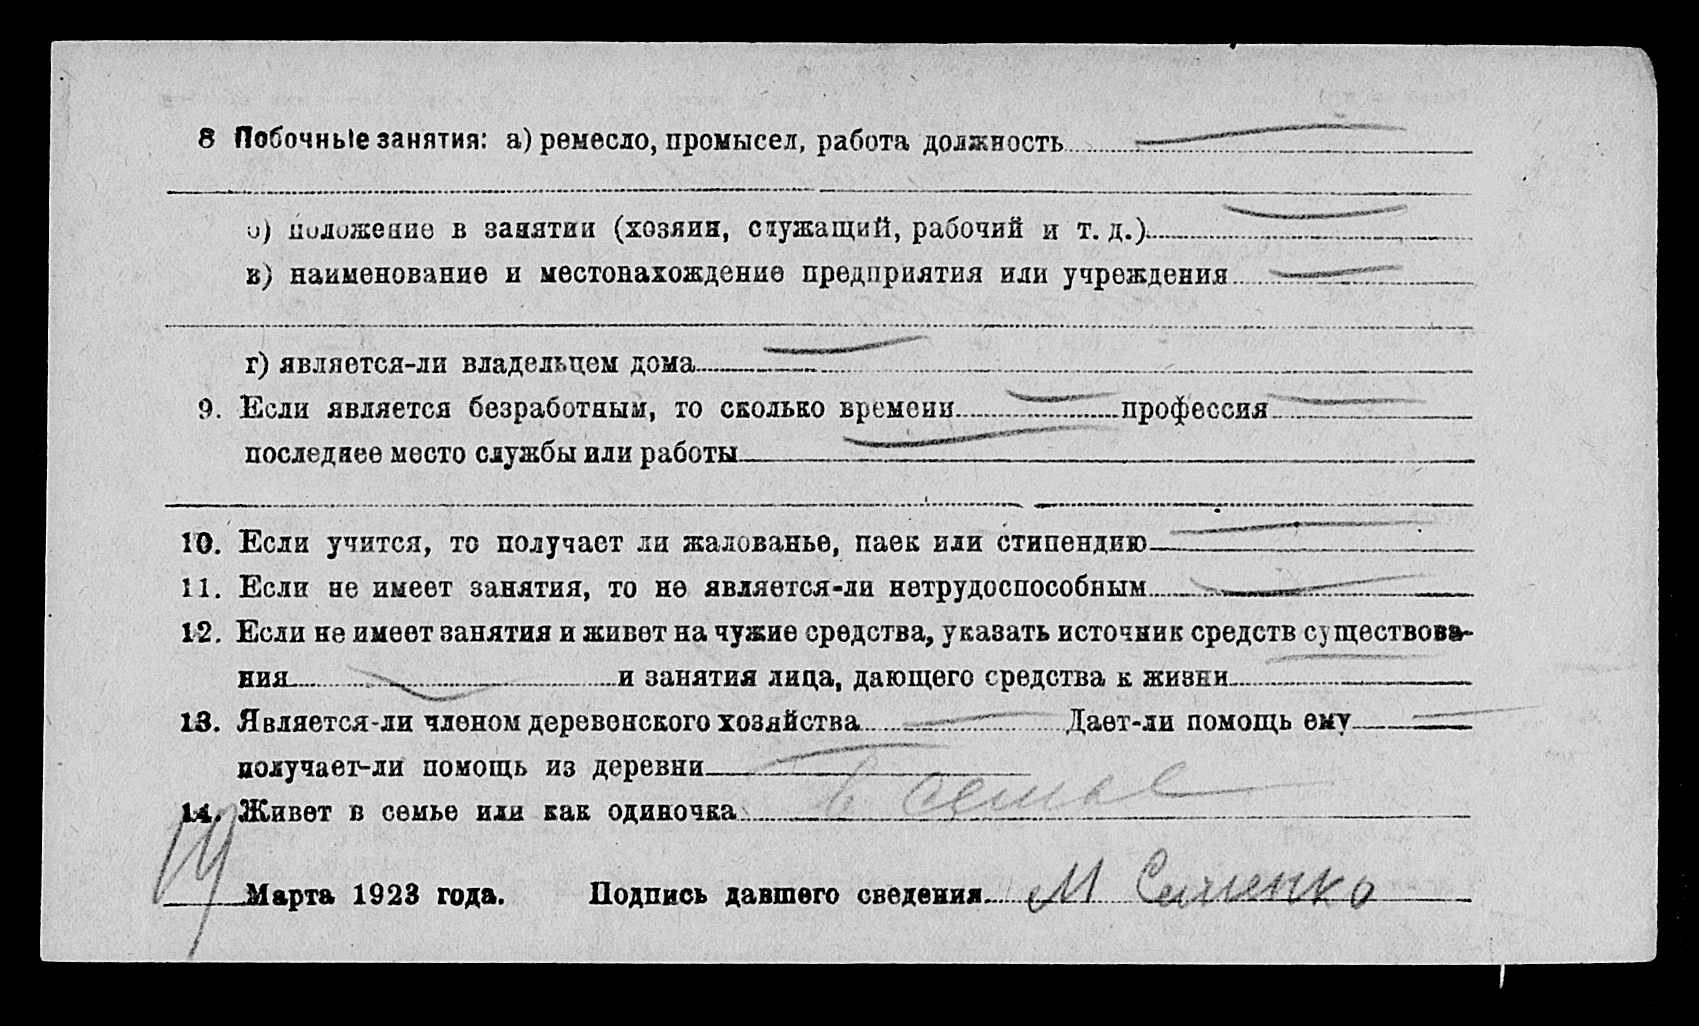 8 Побочные занятия: а) ремесло, промысел, работа должность
б) положение в занятии (хозяин, служащий, рабочий и т. д.)
в) наименование и местонахождение предприятия или учреждения
г) является-ли владельцем дома
9. Если является безработным, то сколько времени профессия
последнее место службы или работы
10. Если учится, то получает ли жалованье, паек или стипендию
11. Если не имеет занятия, то не является-ли нетрудоспособным
12. Если не имеет занятия и живет на чужие средства, указать источник средств существова-
ния и занятия лица, дающего средства к жизни
13. Является-ли членом деревенского хозяйства Дает-ли помощь ему
получает-ли помощь из деревни
14. Живет в семье или как одиночка в семье
19 Марта 1923 года. Подпись давшего сведения М